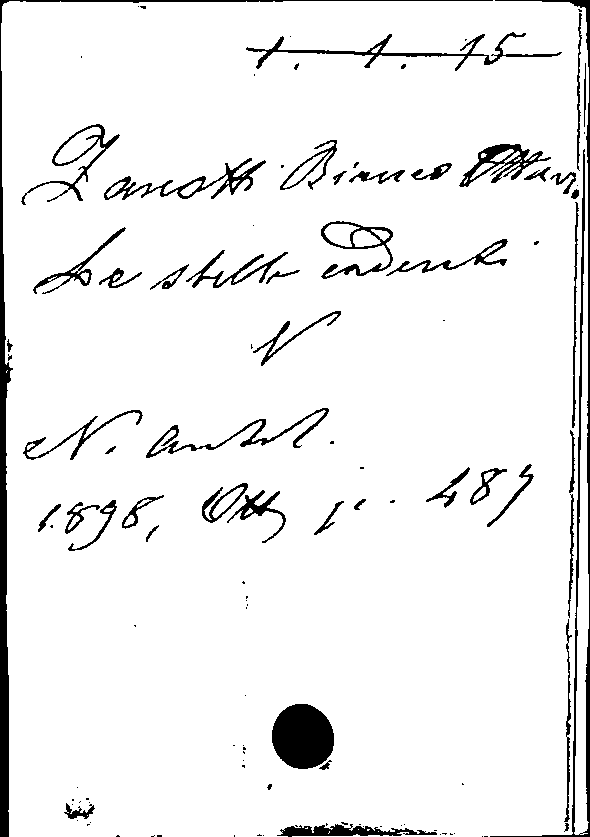 1. 1. 15
Zanotti Bianco Ottav.
Le stelle cadenti
N. Antol.
1898, Ott p. 487